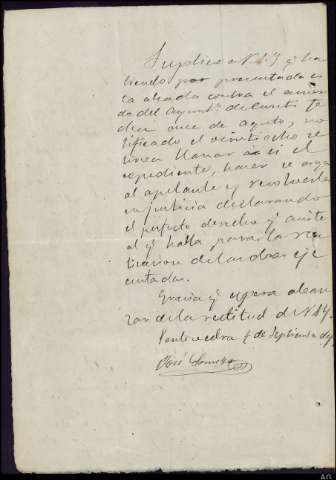 Suplico a V. S. q. ha-
biendo por presentada es-
ta alzada contra el acuer-
do del Ayunt.º de Cuntis fe-
cha once de agosto, no-
tificado el veintiocho se
sirva llamar a si el
expediente, hacer se oiga
al apelante y resolverla
en justicia declarando
el perfecto derecho q. asiste
al q. habla para la
de las obras eje
cutadas.
Gracia q. espera alcan
zar de la rectitud de V. S.
Pontevedra de Septiembre de
José